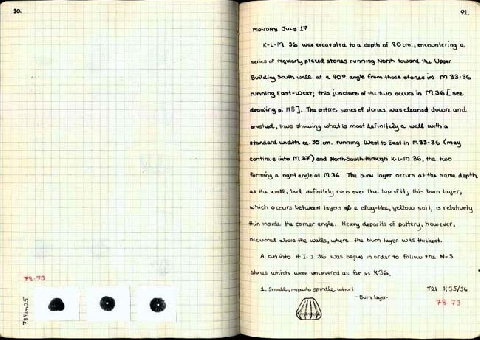 90.
78-73
91.
Monday June 17
K-L-M 36 was excavated to a depth of 80 cm, encountering a
series of regularly placed stones running North toward the Upper
Building South wall at a 90° angle from those stones in M 33-36
running East-West; this junction of the two occurs in M 36 [see
drawing p. 118]. The entire series of stones was cleaned down and
brushed, thus showing what is most definitely a wall with a
standard width ca. 35 cm. running West to East in M 33-36 (may
continue into M 37) and North-South through K-L-M 36, the two
forming a right angle at M 36. The burn layer occurs at the same depth
as the wall, but definitely runs over the top of
which occurs between layers of a clay-like, yellow soil, is relatively
thin inside the corner angle. Heavy deposits of pottery, however,
occurred above the walls, where the burn layer was thickest.
A cut into H-I-J 36 was begun in order to follow the N-S
stones which were uncovered as far as K 36.
1. Small, spindle whorl
Burn layer
T21 K 35/36
78-73